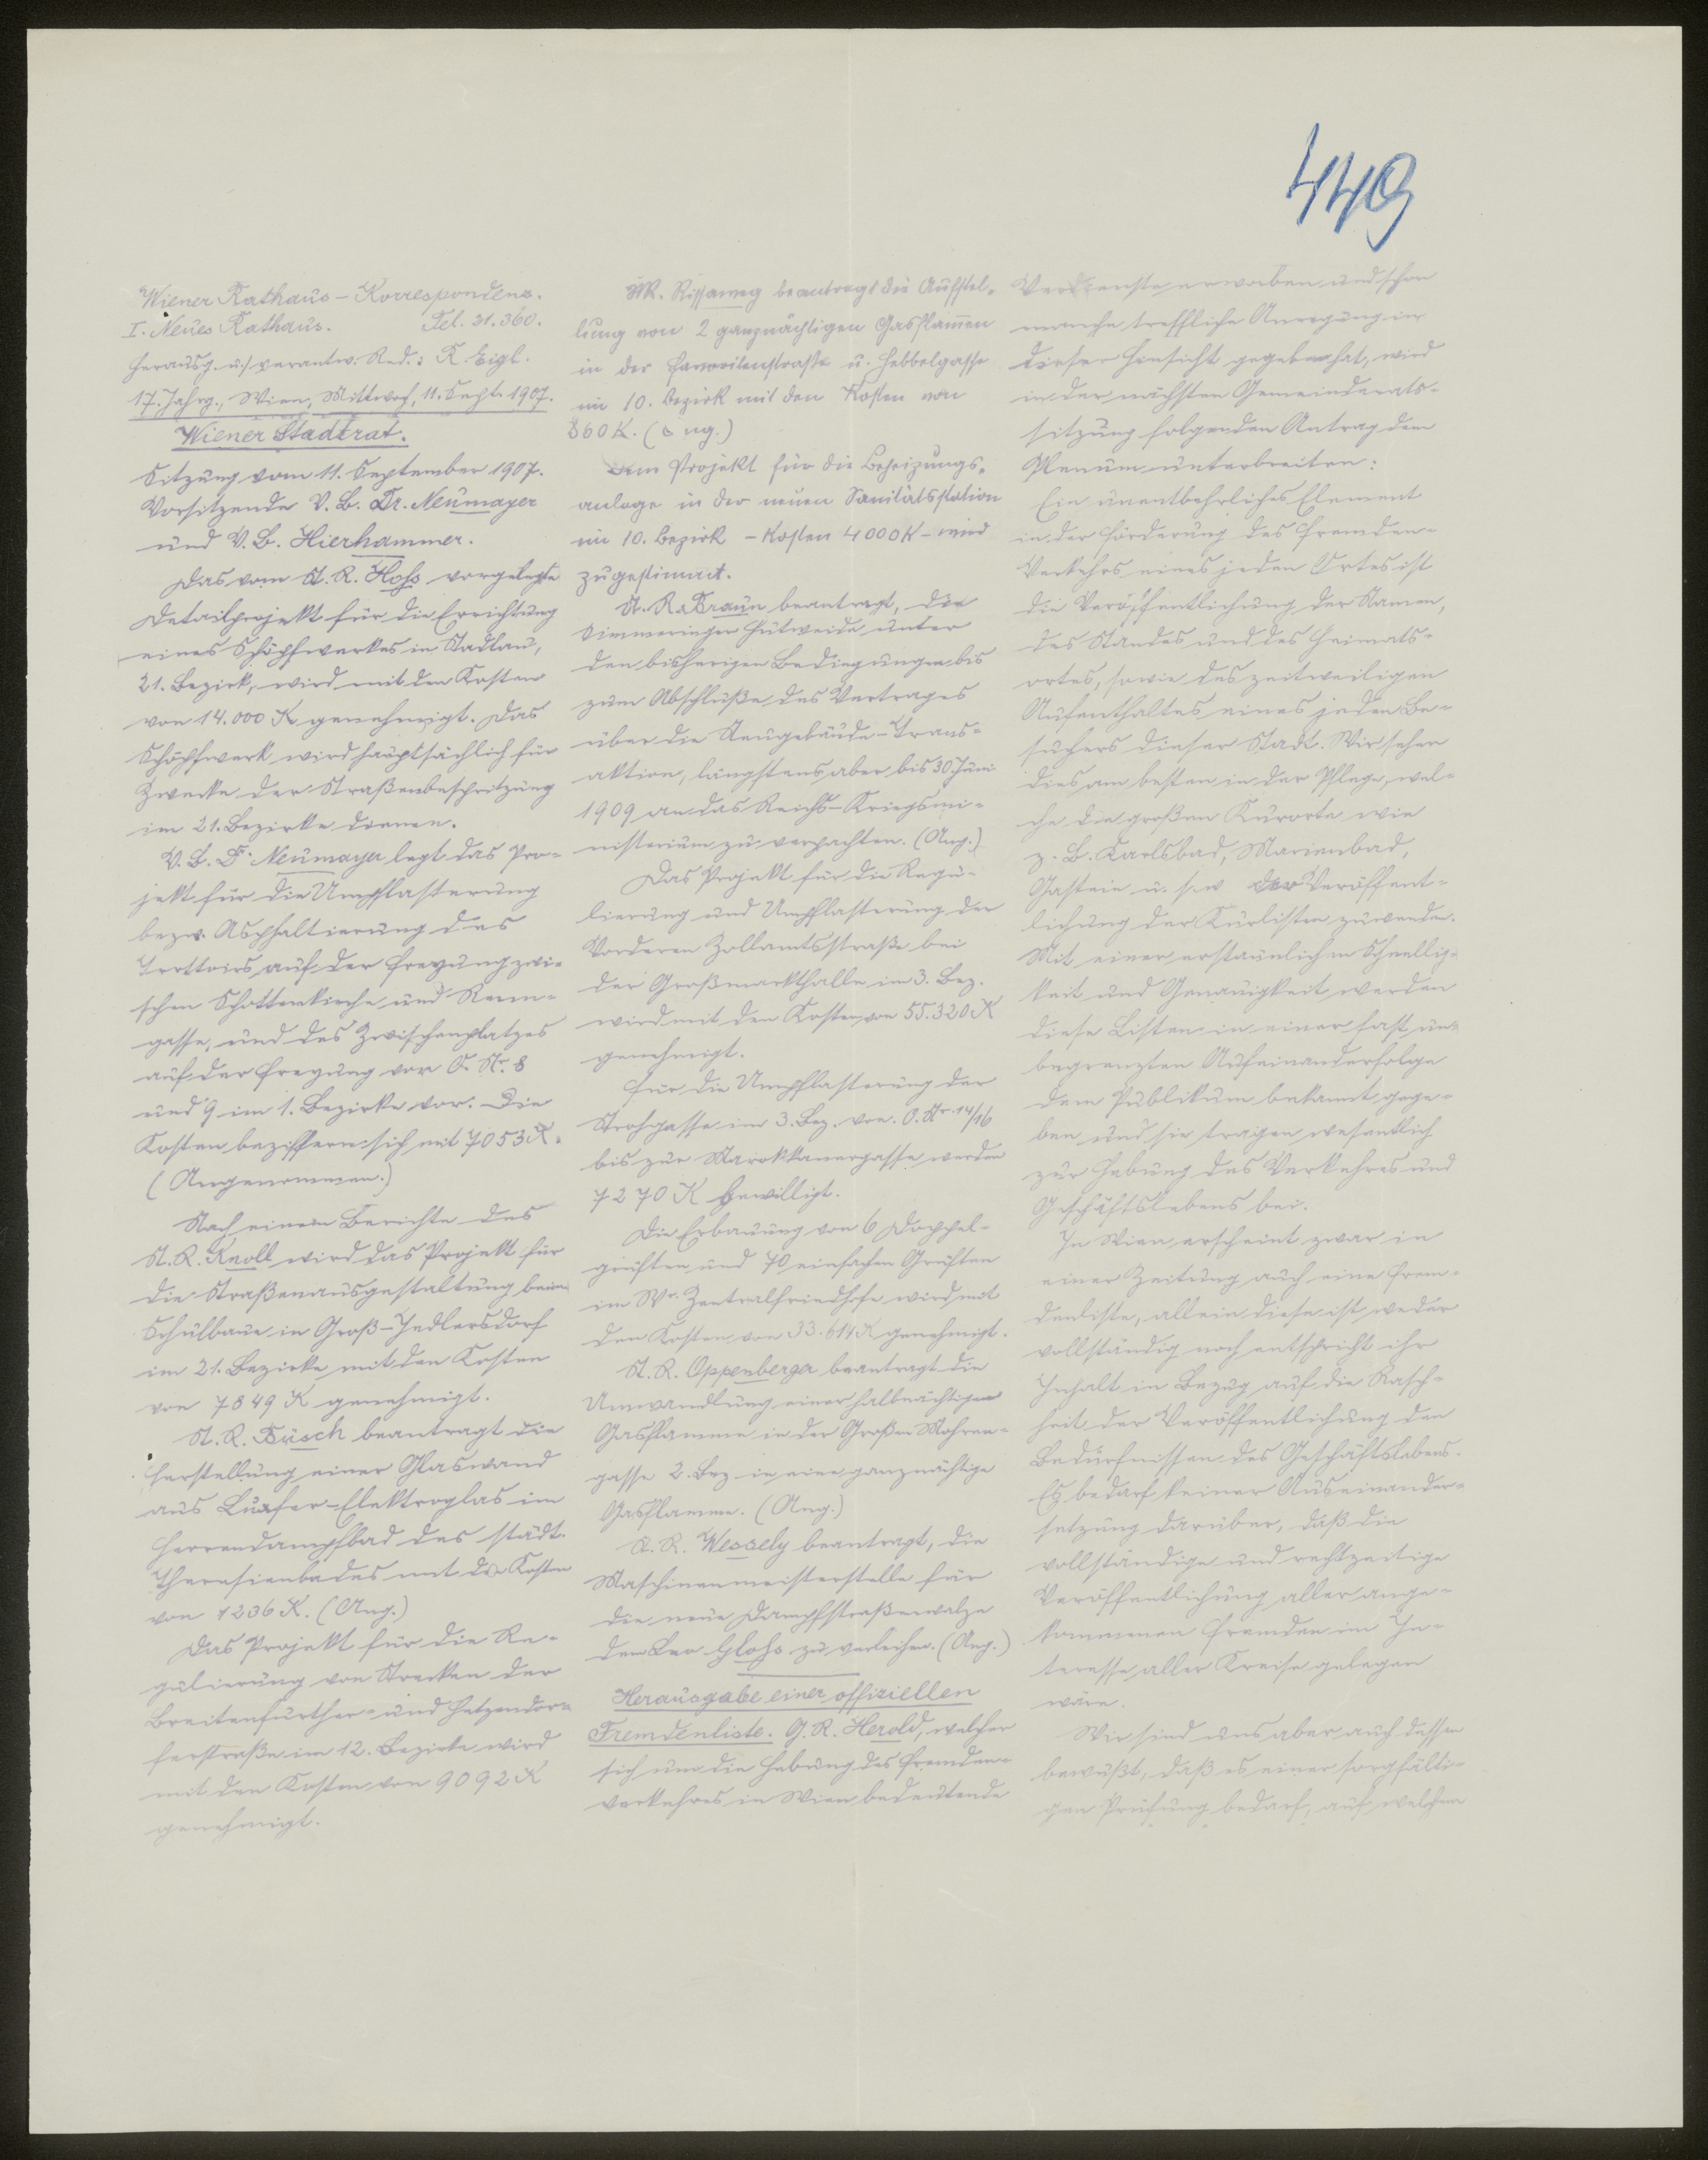 449
Wiener Rathaus-Korrespondenz.
I. Neues Rathaus. Tel. 31.360.
Herausg. u. verantw. Red.: R. Eigl.
17. Jahrg., Wien, Mittwoch, 11. Sept. 1907.
Wiener Stadtrat.
Sitzung vom 11. September 1907.
Vorsitzende V. B. Dr. Neumayer
und V. B. Hierhammer.
Das vom St. R. Hoß vorgelegte
Detailprojekt für die Errichtung
eines Schöpfwerkes in Stadlau,
21. Bezirk, wird mit den Kosten
von 14.000 K genehmigt. Das
Schöpfwerk wird hauptsächlich für
Zwecke der Straßenbespritzung
im 21. Bezirke dienen.
V. B. Dr. Neumayer legt das Pro-
jekt für die Umpflasterung
bezw. Asphaltierung des
Trottoirs auf der Freyung zwi-
schen Schottenkirche und Renn-
gasse, und des Zwischenplatzes
auf der Freyung vor O. Nr. 8
und 9 im 1. Bezirke vor. Die
Kosten beziffern sich mit 7053 K.
(Angenommen.)
Nach einem Berichte des
St. R. Knoll wird das Projekt für
die Straßenausgestaltung beim
Schulbaue in Groß-Jedlersdorf
im 21. Bezirke mit den Kosten
von 7849 K genehmigt.
St. R. Büsch beantragt die
Herstellung einer Glaswand
aus Luxfer-Elektroglas im
Herrendampfbad des städt.
Theresienbades mit den Kosten
von 1236 K. (Ang.)
Das Projekt für die Re-
gulierung von Strecken der
Breitenfurther- und Hetzendor-
ferstraße im 12. Bezirke wird
mit den Kosten von 9092 K
genehmigt.
StR. Rissaweg beantragt die Aufstel-
lung von 2 ganznächtigen Gasflam̄en
in der Favoritenstraße u. Hebbelgasse
im 10. Bezirk mit den Kosten von
860 K. (Ang.)
Dem Projekt für die Beheizungs-
anlage in der neuen Sanitätsstation
im 10. Bezirk – Kosten 4000 K – wird
zugestimmt.
St. R. Braun beantragt, die
Simmeringer Hutweide unter
den bisherigen Bedingungen bis
zum Abschluße des Vertrages
über die Neugebäude-Trans-
aktion, längstens aber bis 30 Juni
1909 an das Reichs-Kriegsmi-
nisterium zu verpachten. (Ang.)
Das Projekt für die Regu-
lierung und Umpflasterung der
Vorderen Zollamtsstraße bei
der Großmarkthalle im 3. Bez.
wird mit den Kosten von 55.320 K
genehmigt.
Für die Umpflasterung der
Strohgasse im 3. Bez. von O. Nr. 14/16
bis zur Marokkanergasse werden
7270 K bewilligt.
Die Erbauung von 6 Doppel-
grüften und 70 einfachen Grüften
im Wr. Zentralfriedhofe wird mit
den Kosten von 33.614 K genehmigt.
St. R. Oppenberger beantragt die
Umwandlung einer halbnächtigen
Gasflamme in der Großen Mohren-
gasse 2. Bez in eine ganznächtige
Gasflamme. (Ang.)
St. R. Wessely beantragt, die
Maschinenmeisterstelle für
die neue Dampfstraßenwalze
dem Leo Gloß zu verleihen. (Ang.)
Herausgabe einer offiziellen
Fremdenliste. G. R. Herold, welcher
sich um die Hebung des Fremden-
verkehres in Wien bedeutende
Verdienste erworben und schon
manche treffliche Anregung in
dieser Hinsicht gegeben hat, wird
in der nächsten Gemeinderats-
sitzung folgenden Antrag dem
Plenum unterbreiten:
Ein unentbehrliches Element
in der Förderung des Fremden-
Verkehrs eines jeden Ortes ist
die Veröffentlichung der Namen,
des Standes und des Heimats-
ortes, sowie des zeitweiligen
Aufenthaltes eines jeden Be-
suchers dieser Stadt. Wir sehen
dies am besten in der Pflege, wel-
che die großen Kurorte wie
z. B. Karlsbad, Marienbad,
Gastein u. s. w der Veröffent-
lichung der Kurlisten zuwenden.
Mit einer erstaunlichen Schnellig-
keit und Genauigkeit werden
diese Listen in einer fast un-
begrenzten Aufeinanderfolge
dem Publikum bekannt gege-
ben und sie tragen wesentlich
zur Hebung des Verkehres und
Geschäftslebens bei.
In Wien erscheint zwar in
einer Zeitung auch eine Frem-
denliste, allein diese ist weder
vollständig noch entspricht ihr
Inhalt in Bezug auf die Rasch-
heit der Veröffentlichung den
Bedürfnissen des Geschäftslebens.
Es bedarf keiner Auseinander-
setzung darüber, daß die
vollständige und rechtzeitige
Veröffentlichung aller ange-
kommenen Fremden im In-
teresse aller Kreise gelegen
wäre.
Wir sind uns aber auch dessen
bewußt, daß es einer sorgfälti-
gen Prüfung bedarf, auf welchem